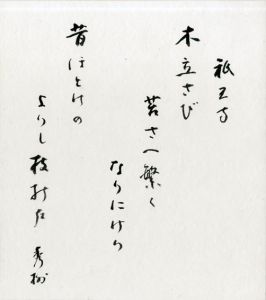 祇王寺
木立さび
苔さへ繁く
なりにけり
昔ほとけの
よりし枝折戸